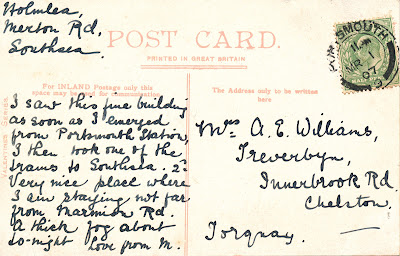 Holmlea,
Merton Rd,
Southsea.
POST CARD.
PRINTED IN GREAT BRITAIN
For INLAND Postage only this
space may be used for communication
The Address only to be written
here
I saw this fine building
as soon as I emerged
from Portsmouth Station,
I then took one of the
trams to Southsea.
Very nice place where
I am staying not far
from Marmion Rd.
A thick fog about
to-night Love from M.
Mrs A. E. Williams,
Treverbyn,
Innerbrook Rd
Chelston.
Torquay.
VALENTINES SERIES
SMOUTH
07